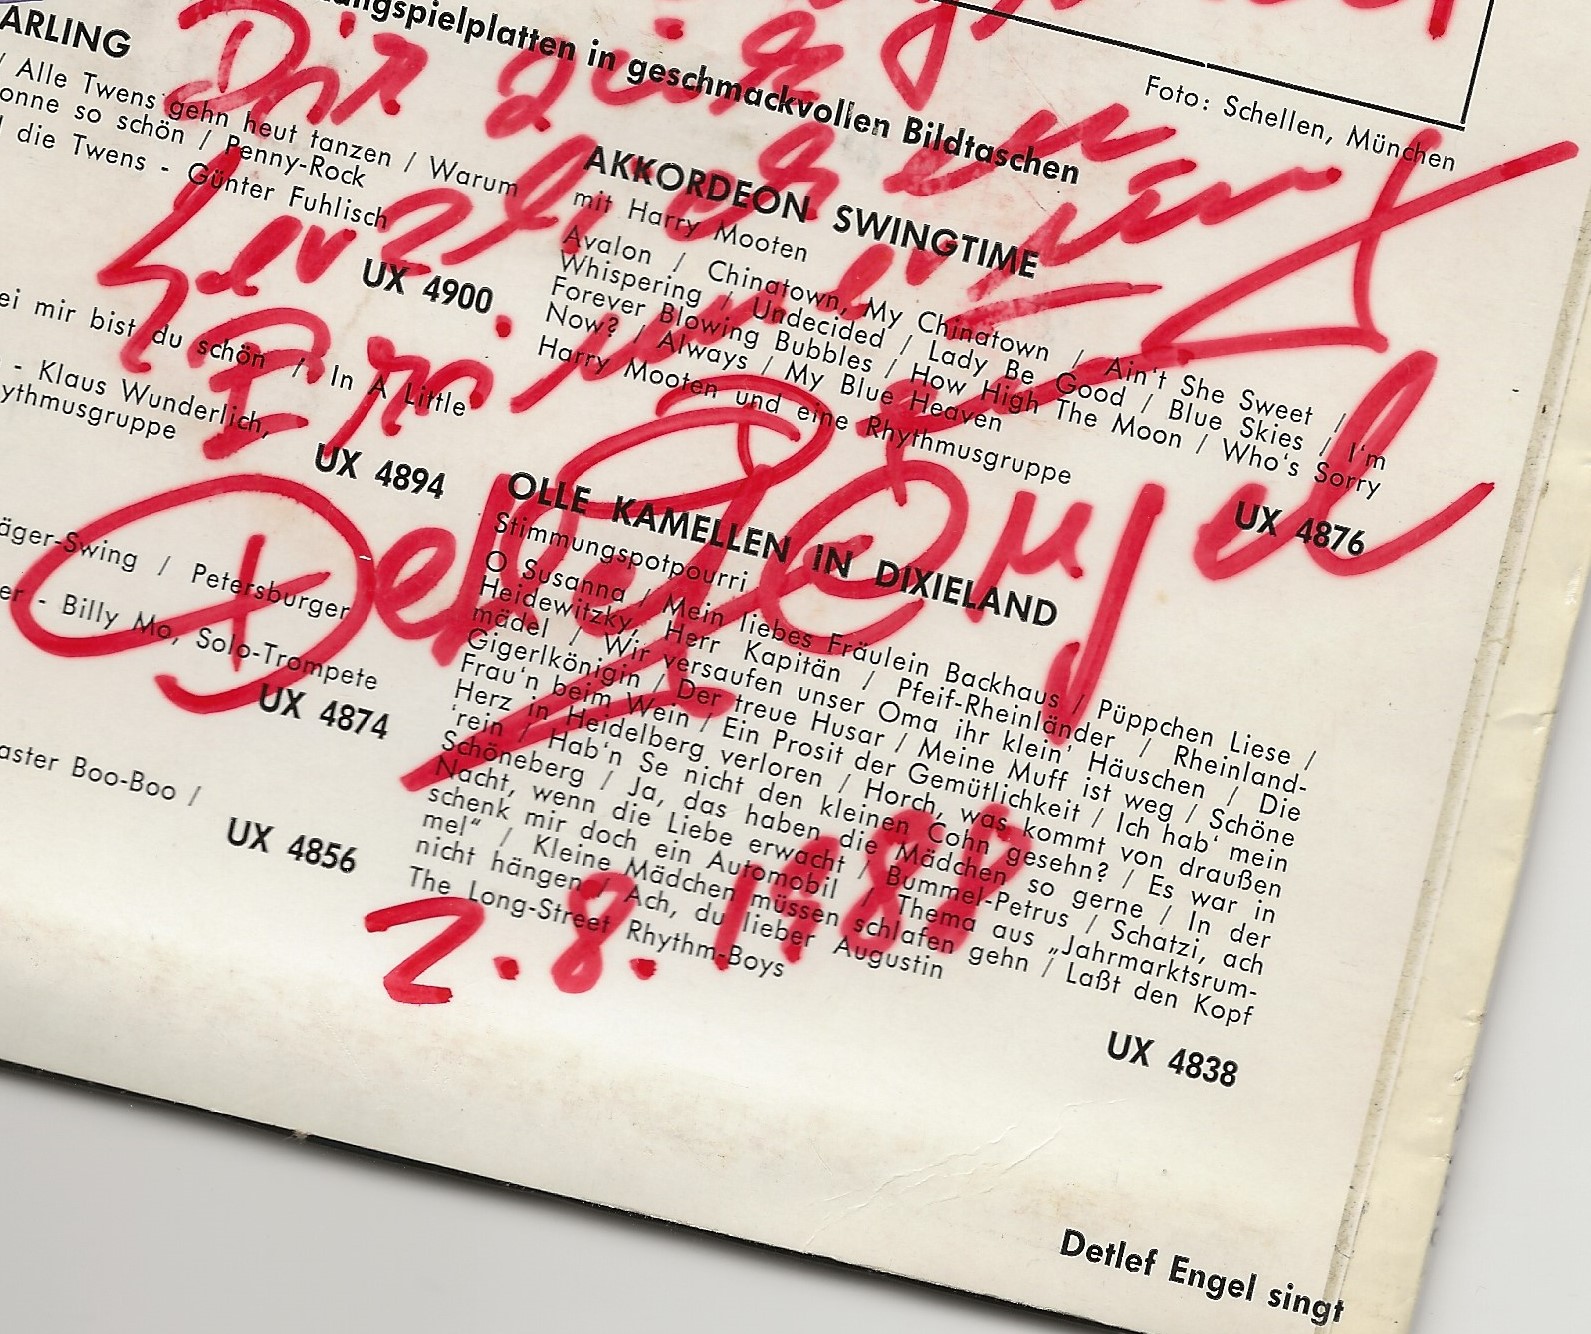 ngspielplatten in geschmackvollen Bildtaschen
Foto: Schellen, München
ARLING
/ Alle Twens gehn heut tanzen / Warum
onne so schön / Penny-Rock
die Twens - Günter Fuhlisch
UX 4900
ei mir bist du schön / In A Little
- Klaus Wunderlich,
ythmusgruppe
UX 4894
äger-Swing / Petersburger
er - Billy Mo, Solo-Trompete
UX 4874
aster Boo-Boo /
UX 4856
AKKORDEON SWINGTIME
mit Harry Mooten
Avalon / Chinatown, My Chinatown / Ain't She Sweet /
Whispering / Undecided / Lady Be Good / Blue Skies / I'm
Forever Blowing Bubbles / How High The Moon / Who's Sorry
Now? / Always / My Blue Heaven
Harry Mooten und eine Rhythmusgruppe
UX 4876
OLLE KAMELLEN IN DIXIELAND
Stimmungspotpourri
O Susanna / Mein liebes Fräulein Backhaus / Püppchen Liese /
Heidewitzky, Herr Kapitän / Pfeif-Rheinländer / Rheinland-
mädel / Wir versaufen unser Oma ihr klein' Häuschen / Die
Gigerlkönigin / Der treue Husar / Meine Muff ist weg / Schöne
Frau'n beim Wein / Ein Prosit der Gemütlichkeit / Ich hab' mein
Herz in Heidelberg verloren / Horch, was kommt von draußen
'rein / Hab'n Se nicht den kleinen Cohn gesehn? / Es war in
Schöneberg / Ja, das haben die Mädchen so gerne / In der
Nacht, wenn die Liebe erwacht / Bummel-Petrus / Schatzi, ach
schenk mir doch ein Automobil / Thema aus „Jahrmarktsrum-
mel“ / Kleine Mädchen müssen schlafen gehn / Laßt den Kopf
nicht hängen / Ach, du lieber Augustin
The Long-Street Rhythm-Boys
UX 4838
Detlef Engel
2.8.1988
Detlef Engel singt